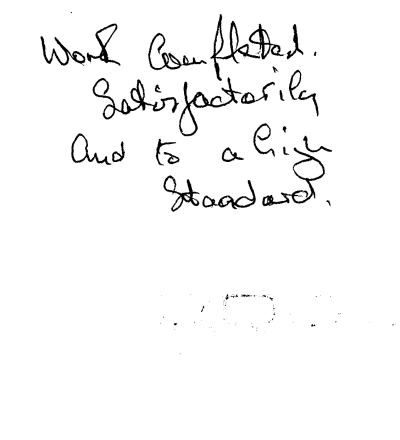 Work Completed.
Satisfactorily
and to a high
Standard.